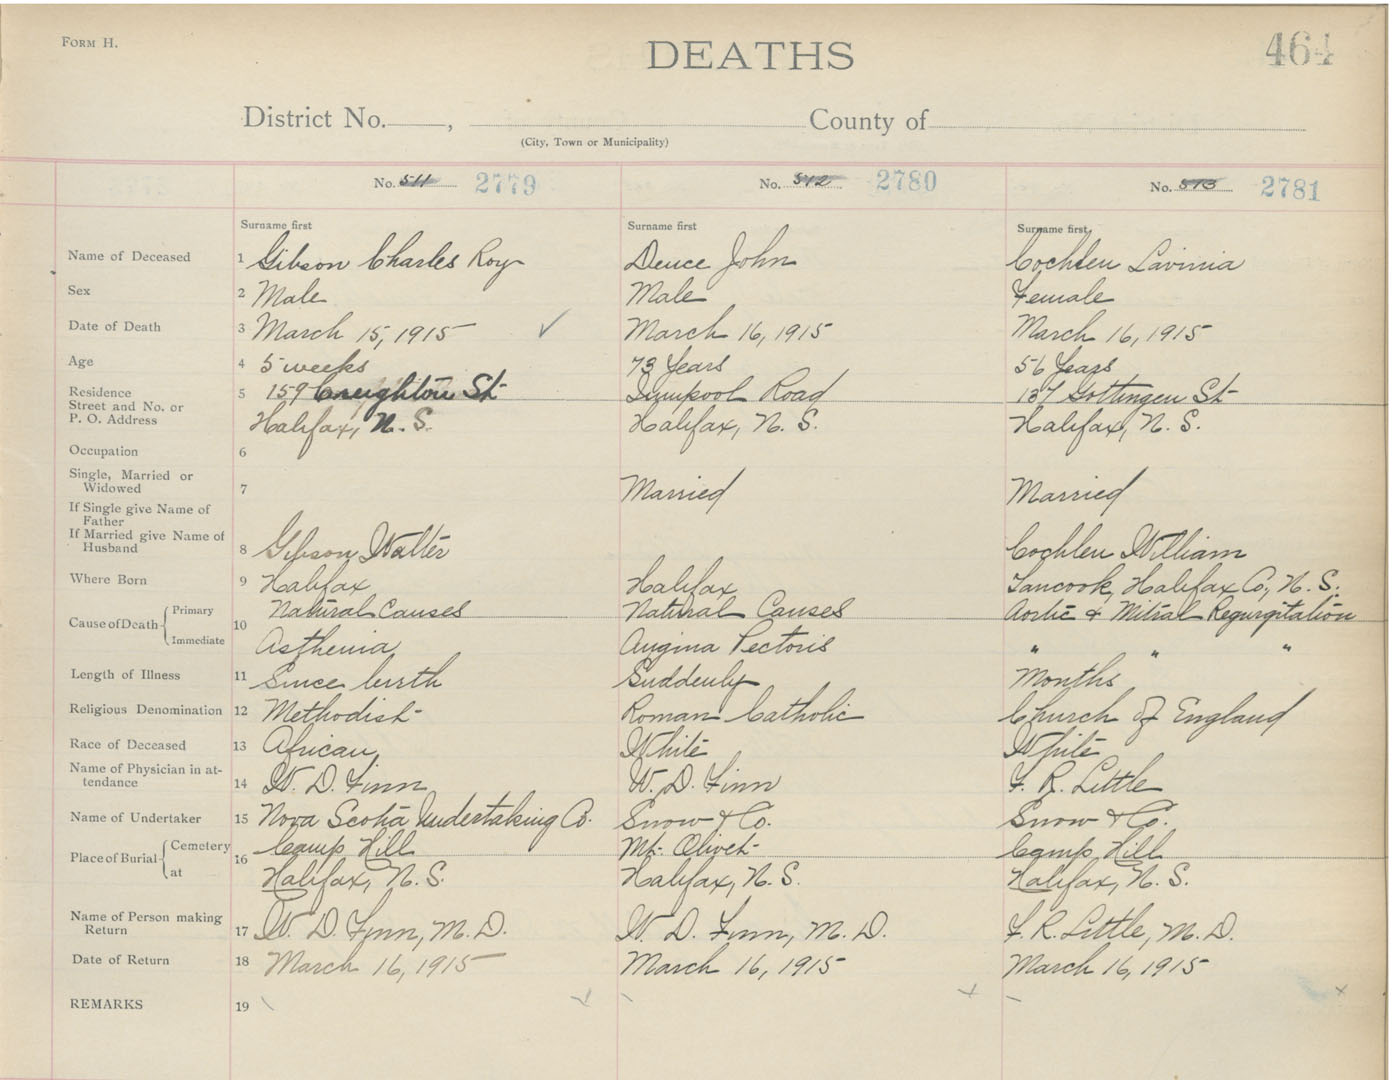 FORM H.
DEATHS
464
District No. , County of
(City, Town or Municipality)
No. 511 2779 No. 512 2780 No. 513 2781
Surname first Surname first Surname first
Name of Deceased 1 Gibson Charles Roy Deuce John Cochlen Lavinia
Sex 2 Male Male Female
Date of Death 3 March 15, 1915 ✓ March 16, 1915 March 16, 1915
Age 4 5 weeks 73 Years 56 Years
Residence 5 159 Creighton St Road 137 Gottingen St
Street and No. or
P. O. Address Halifax, N. S. Halifax, N. S. Halifax, N. S.
Occupation 6
Single, Married or
Widowed 7 Married Married
If Single give Name of
Father
If Married give Name of
Husband 8 Gibson Walter Cochlen William
Where Born 9 Halifax Halifax Tancook, Halifax Co, N. S.
Cause of Death 10 Primary Natural Causes Natural Causes Aortic & Mitral Regurgitation
Immediate Asthenia Angina Pectoris " " "
Length of Illness 11 Since birth Suddenly Months
Religious Denomination 12 Methodist Roman Catholic Church of England
Race of Deceased 13 African White White
Name of Physician in at-
tendance 14 W. D. Finn W. D. Finn F. R. Little
Name of Undertaker 15 Nova Scotia Undertaking Co. Snow & Co. Snow & Co.
Place of Burial 16 Cemetery Camp Hill Mt. Olivet Camp Hill
at Halifax, N. S. Halifax, N. S. Halifax, N. S.
Name of Person making
Return 17 W. D. Finn, M. D. W. D. Finn, M. D. F. R. Little, M. D.
Date of Return 18 March 16, 1915 March 16, 1915 March 16, 1915
REMARKS 19